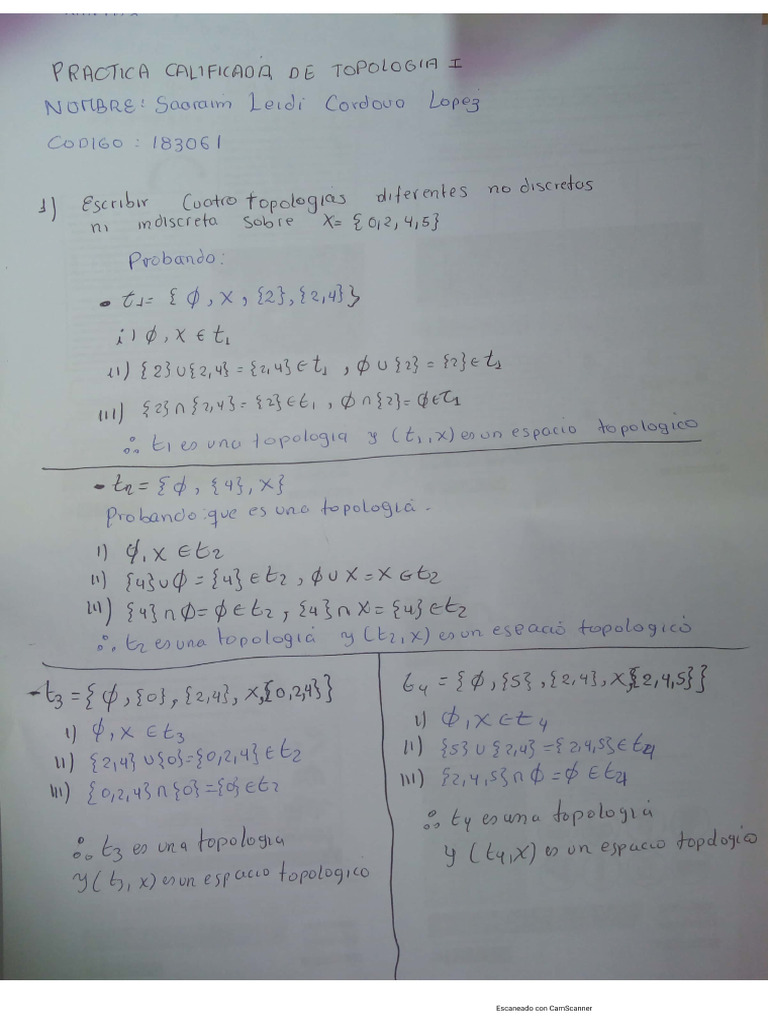 PRACTICA CALIFICADA DE TOPOLOGIA I
NOMBRE: Saaraim Leidi Cordova Lopez
CODIGO : 183061
1) Escribir Cuatro topologias diferentes no discretos
ni indiscreta sobre X= {0,2,4,5}
Probando:
- t1= { ∅, X, {2}, {2,4}}
i) ∅, X ∈ t1
ii) {2}∪{2,4} = {2,4}∈ t1 , ∅ ∪ {2} = {2}∈ t1
iii) {2}∩{2,4}= {2}∈t1 , ∅∩{2}= ∅∈t1
∴ t1 es una topologia y (t1,X) es un espacio topologico
- t2= {∅, {4}, X}
Probando: que es una topologia.
i) ∅, X ∈ t2
ii) {4}∪∅ = {4} ∈ t2 , ∅∪X = X ∈ t2
iii) {4}∩∅= ∅ ∈ t2 , {4}∩X = {4} ∈ t2
∴ t2 es una topologia y (t2,X) es un espacio topologico
- t3 = {∅, {0}, {2,4}, X, {0,2,4}}
i) ∅, X ∈ t3
ii) {2,4} ∪{0}={0,2,4} ∈ t2
iii) {0,2,4}∩{0}={0}∈ t2
∴ t3 es una topologia
y (t3, X) es un espacio topologico
t4 = {∅, {5}, {2,4}, X, {2,4,5}}
i) ∅, X ∈ t4
ii) {5} ∪ {2,4} = {2,4,5} ∈ t4
iii) {2,4,5} ∩ ∅ = ∅ ∈ t4
∴ t4 es una topologia
y (t4,X) es un espacio topologico
Escaneado con CamScanner